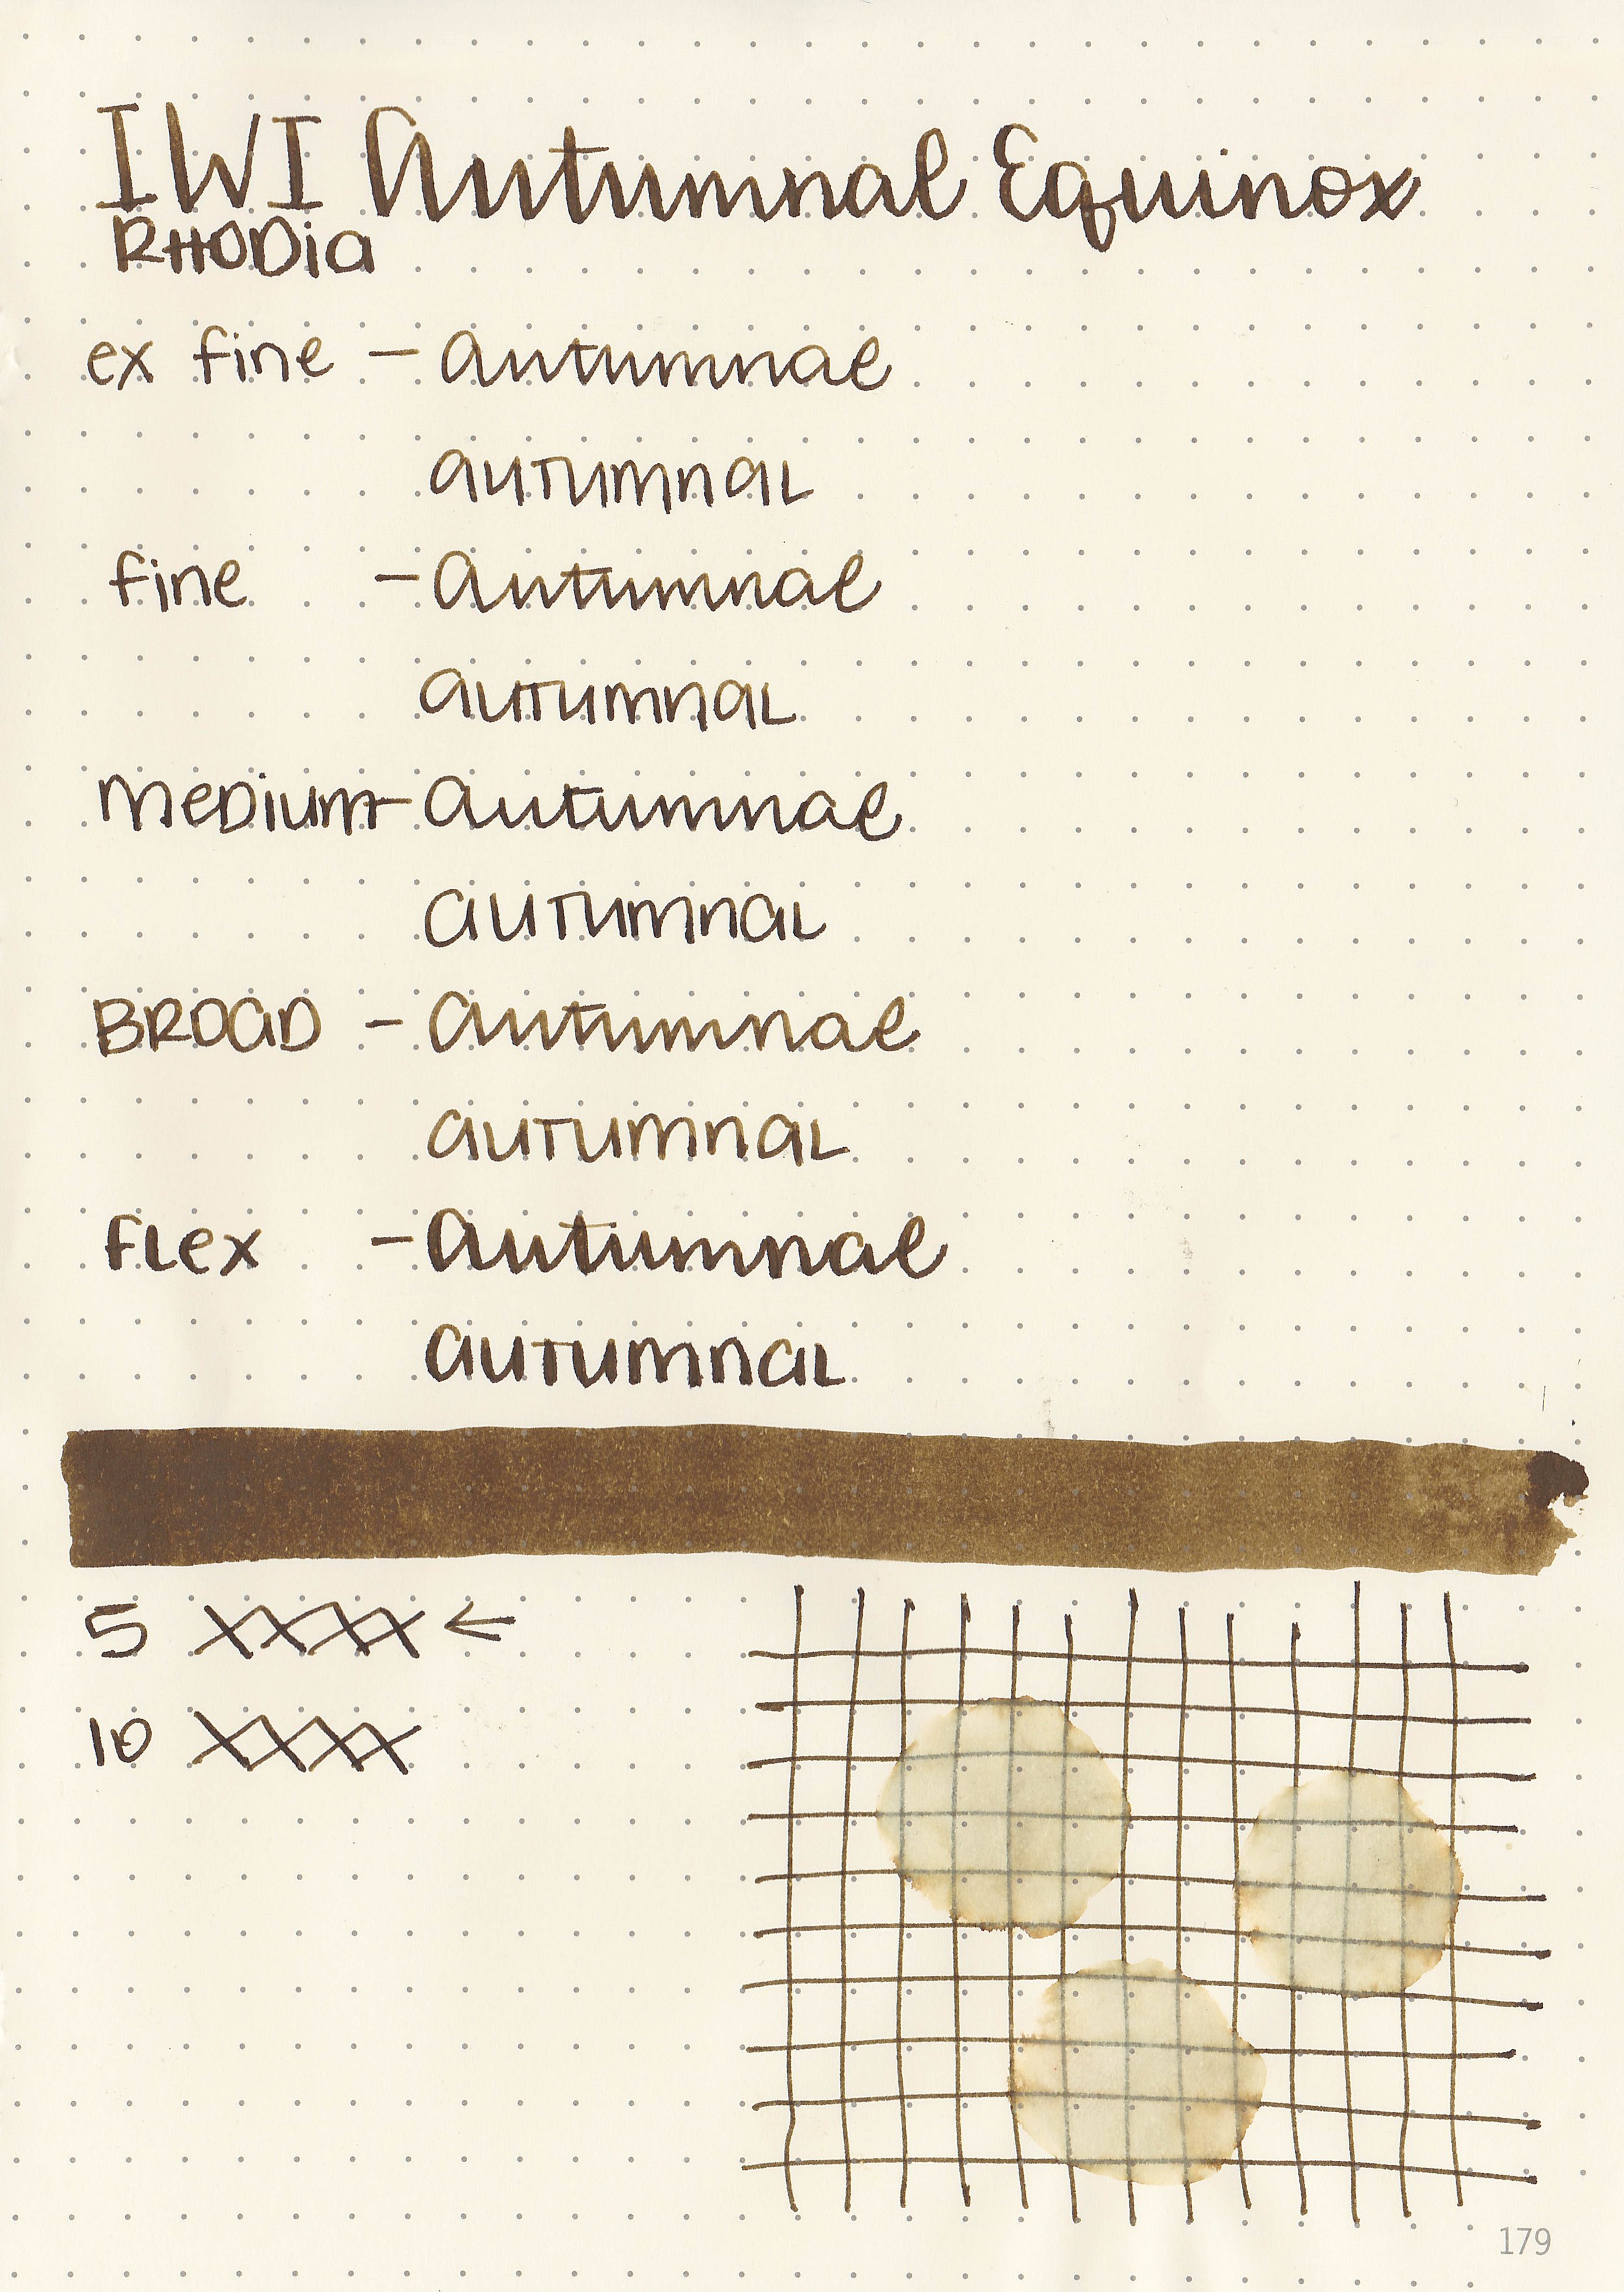 IWI Autumnal Equinox
RHODia
ex fine - autumnal
autumnal
fine - autumnal
autumnal
medium - autumnal
autumnal
BROAD - autumnal
autumnal
flex - autumnal
autumnal
5 XXXX ←
10 XXXX
179